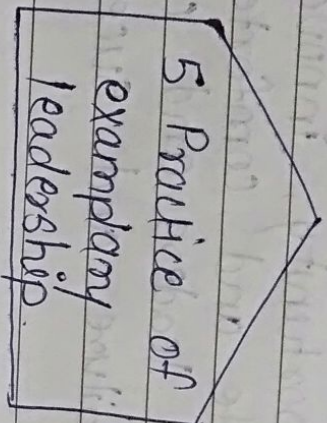 5 Practice of
examplary
leadership.